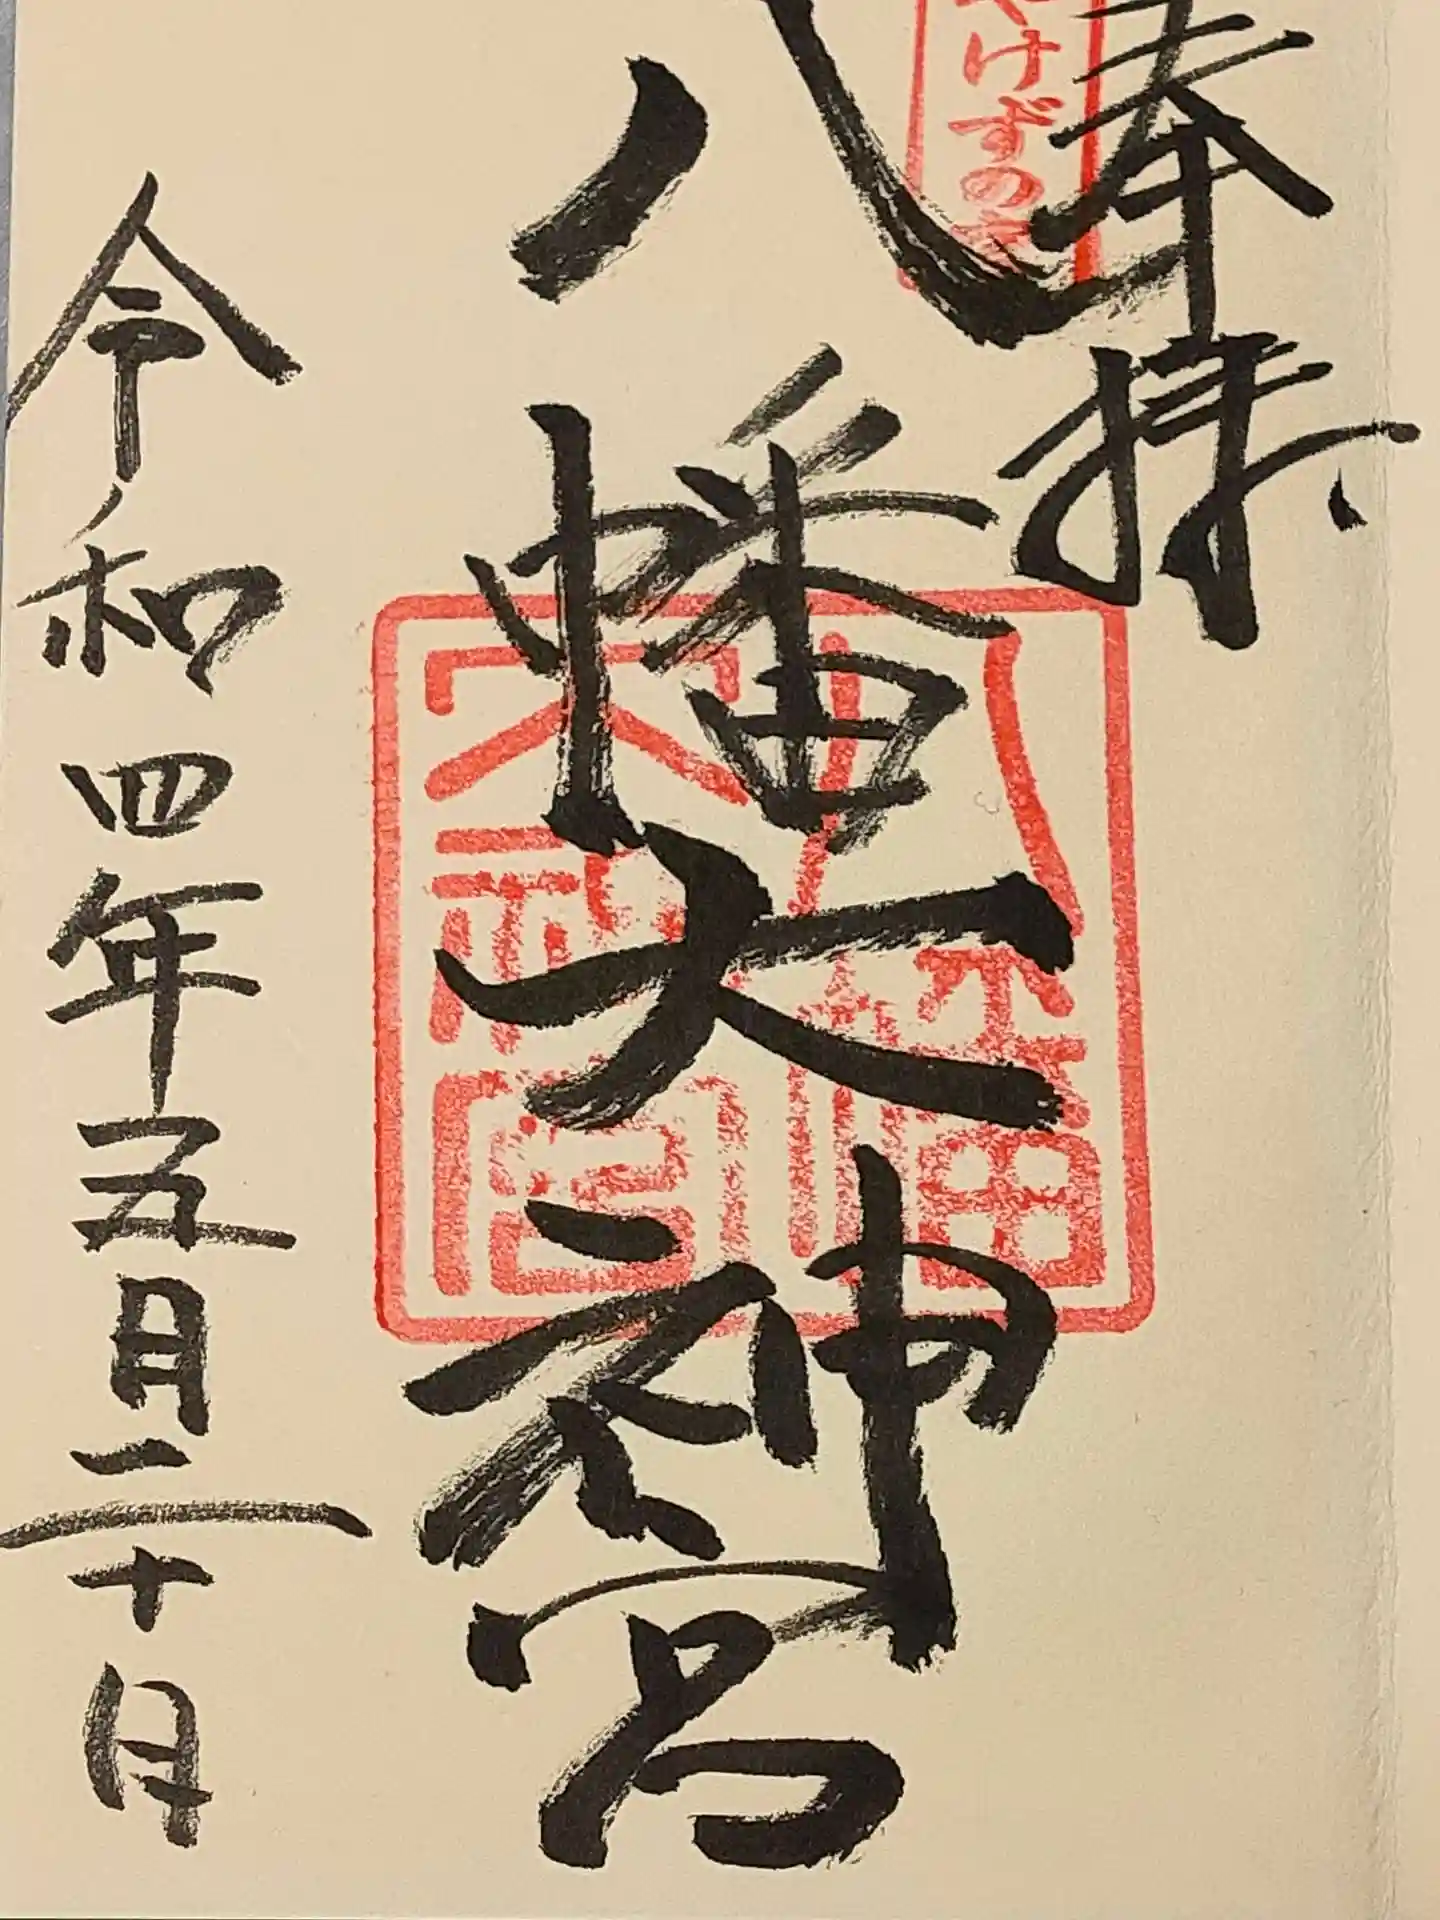 奉拝
やけずの
八幡大神宮
八幡
大神宮
令和四年五月二十日